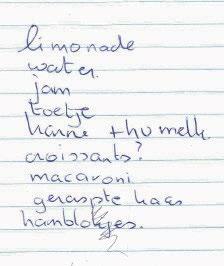 limonade
water
jam
toetje
hanne + hu melk
croissants?
macaroni
geraspte kaas
hamblokjes.